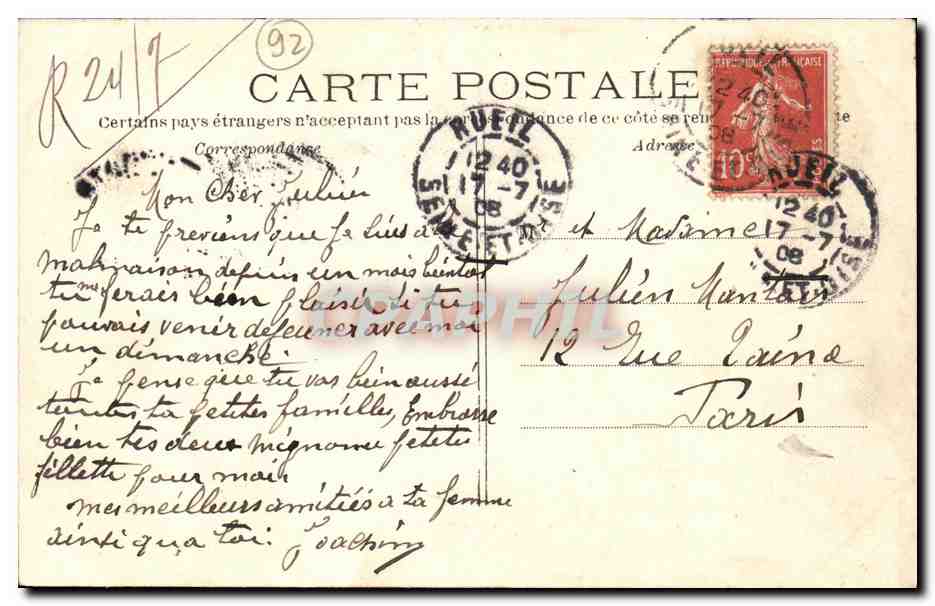 R 24/7
92
CARTE POSTALE
Certains pays étrangers n'acceptant pas la correspondance de ce côté se ren
Correspondance
Adresse
REPUBLIQUE FRANÇAISE
10
POSTES
RUEIL
12 40
17 -7
08
SEINE-ET-OISE
RUEIL
12 40
17 -7
08
Mon Cher Julien
Je te previens que je suis a
malmaison depuis un mois bientot
tu me ferais bien plaisir si tu
pouvais venir dejeuner avec moi
un dimanche.
Je pense que tu vas bien aussi
toutes ta petites familles, Embrasse
bien tes deux mignonne petite
fillette pour moi
mes meilleurs amitiés a ta femme
ainsi qu a toi. Joachim
Mr et Madame
Julien
12 Rue Taine
Paris
CPAPHIL